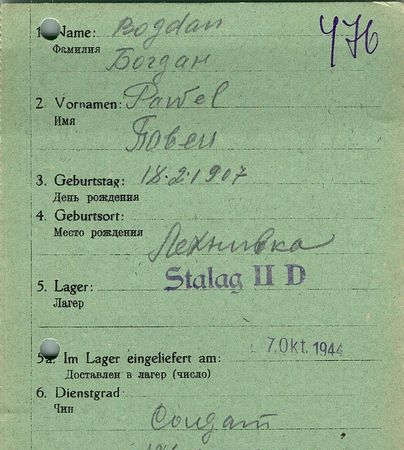 476
1. Name: Bogdan
Фамилия Богдан
2. Vornamen: Pawel
Имя
Повел
3. Geburtstag: 18.2.1907
День рождения
4. Geburtsort:
Место рождения
Лехнивка
5. Lager: Stalag II D
Лагер
5a. Im Lager eingeliefert am: 7. Okt. 1944
Доставлен в лагер (число)
6. Dienstgrad
Чин
Солдат